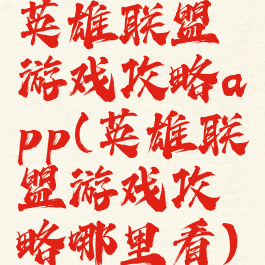 英雄联盟
游戏攻略a
pp(英雄联
盟游戏攻
略哪里看)